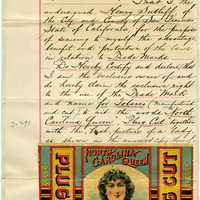 That I the
undersigned, Henry Sutliff, of
the City and County of San Francisco
State of California, for the purpose
of securing to myself the
benefit and protection of the laws
in relation to Trade Marks
Do Hereby Certify and declare, that
I am the exclusive owner of, and
do hereby claim the exclusive right
to the use of the Trade Mark
and name for Tobacco (manufactured
and cut) to wit the words North
Carolina Queen Plug Cut, together
with the picture of a lady,
as shown
NORTH
CAROLINA
QUEEN
PLUG
CUT